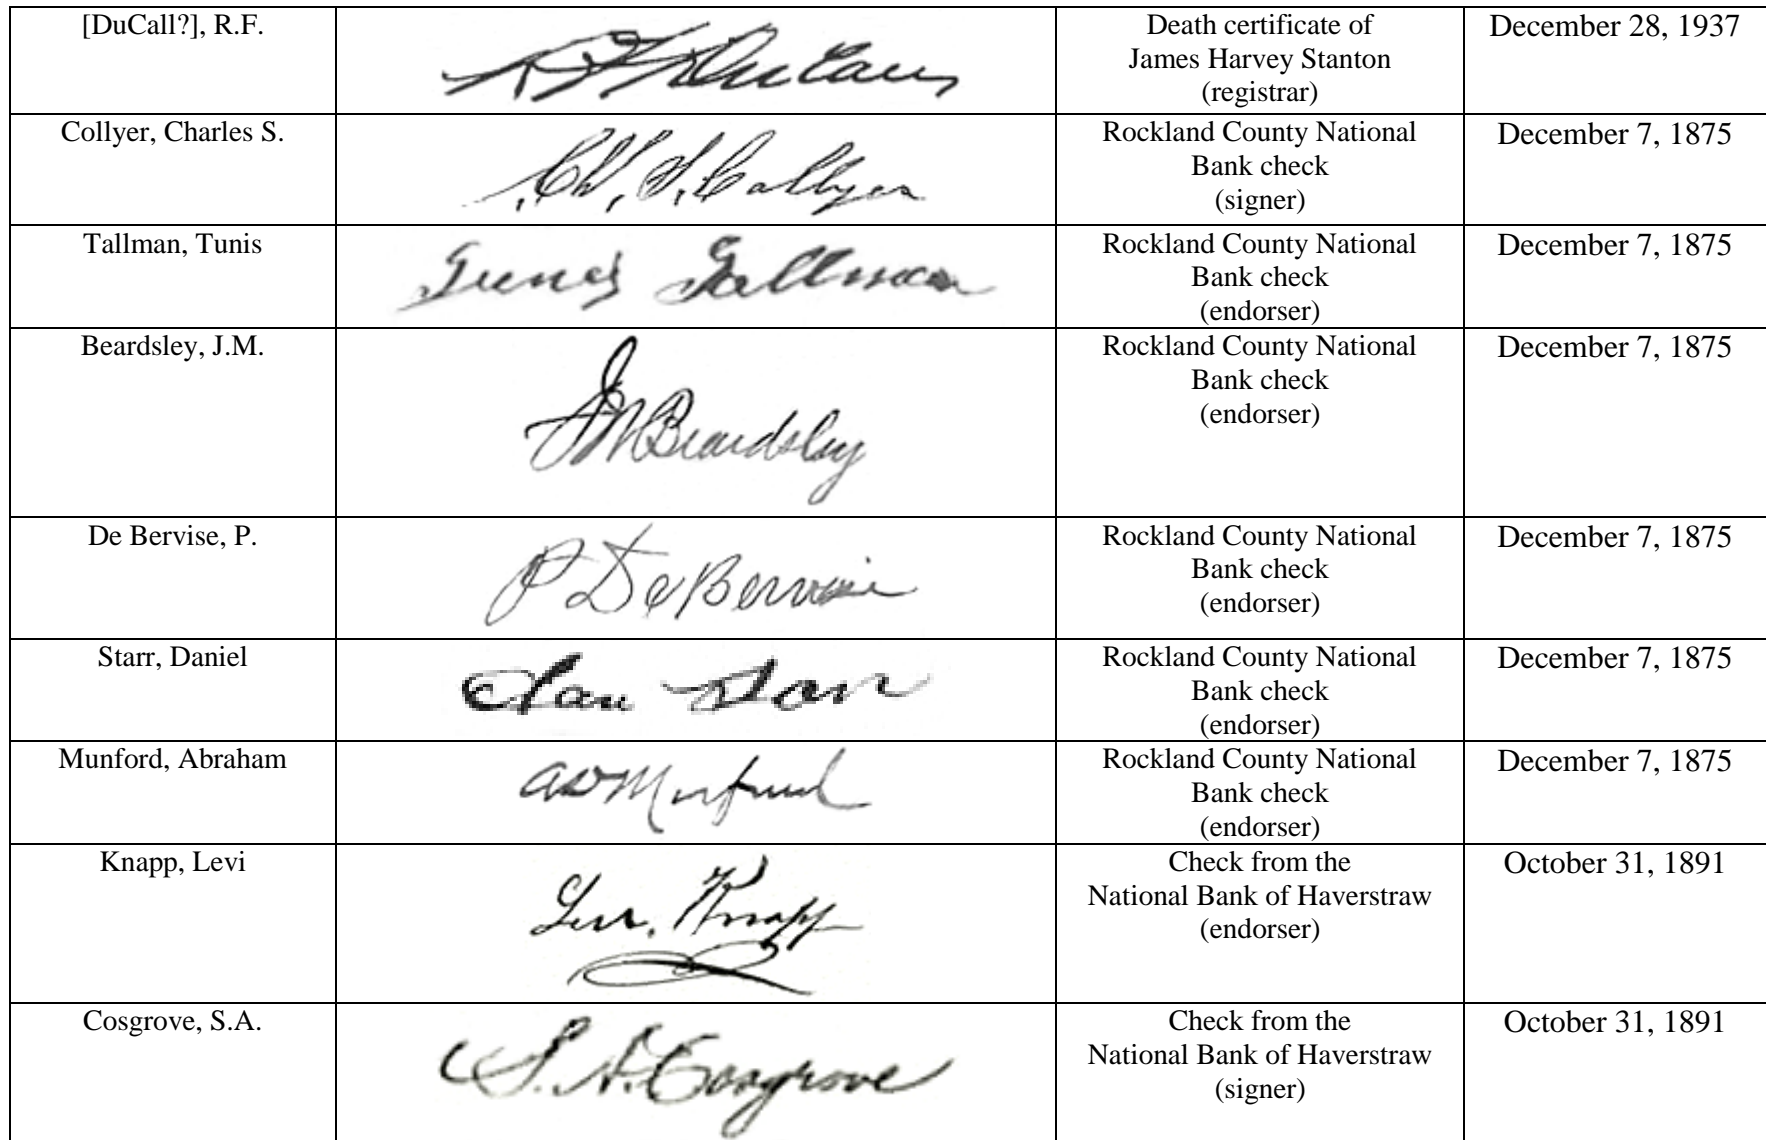 [DuCall?], R.F.
Death certificate of
James Harvey Stanton
(registrar)
December 28, 1937
Collyer, Charles S.
Ch. S. Collyer
Rockland County National
Bank check
(signer)
December 7, 1875
Tallman, Tunis
Tunis Tallman
Rockland County National
Bank check
(endorser)
December 7, 1875
Beardsley, J.M.
JM Beardsley
Rockland County National
Bank check
(endorser)
December 7, 1875
De Bervise, P.
P De Bervise
Rockland County National
Bank check
(endorser)
December 7, 1875
Starr, Daniel
Dan Starr
Rockland County National
Bank check
(endorser)
December 7, 1875
Munford, Abraham
Rockland County National
Bank check
(endorser)
December 7, 1875
Knapp, Levi
Levi Knapp
Check from the
National Bank of Haverstraw
(endorser)
October 31, 1891
Cosgrove, S.A.
S.A. Cosgrove
Check from the
National Bank of Haverstraw
(signer)
October 31, 1891